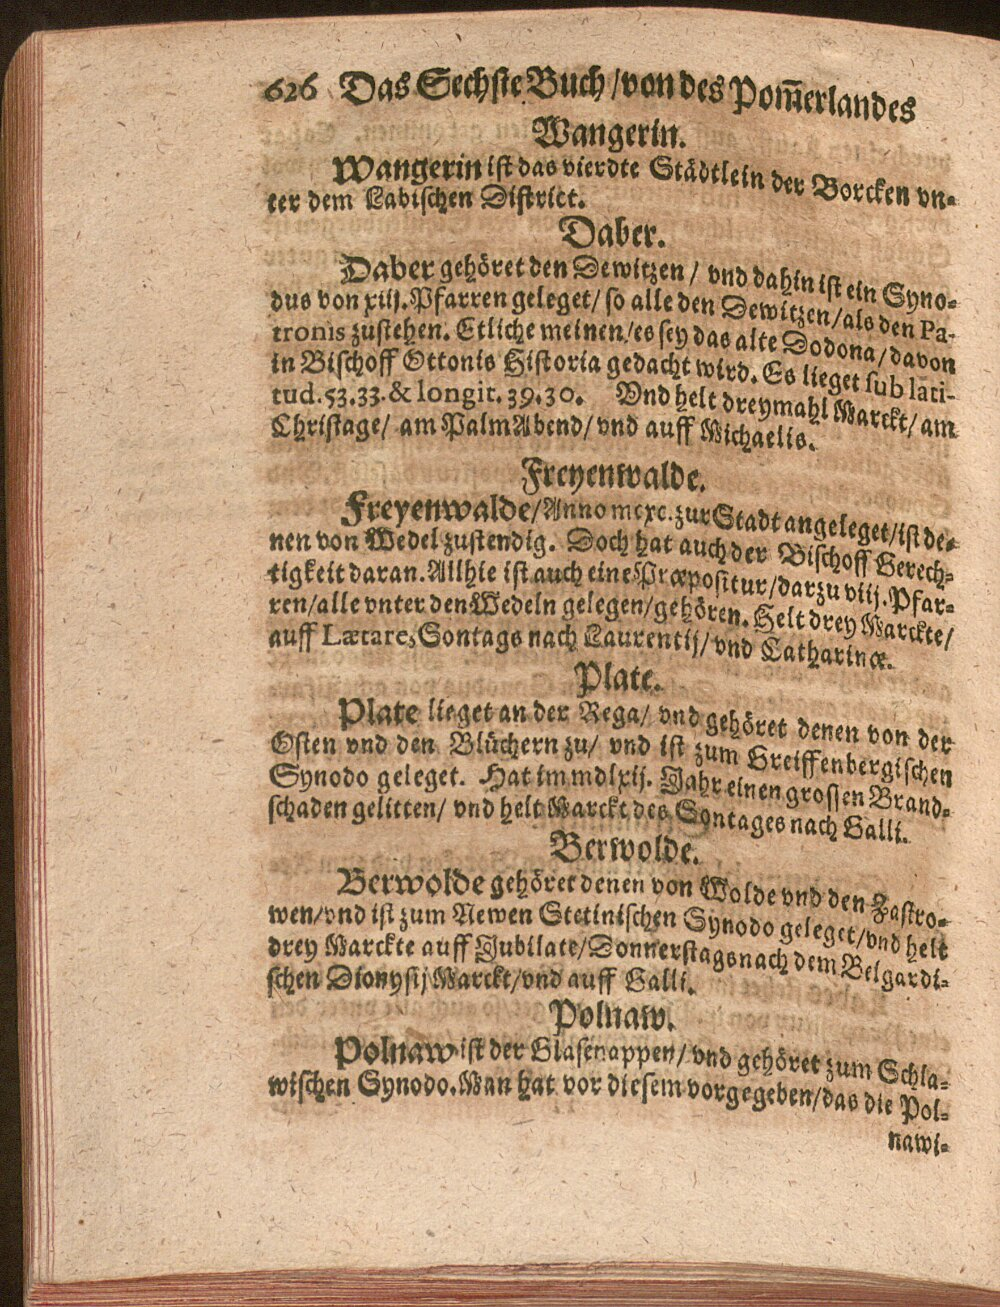 626 Das Sechste Buch/von des Pom̃erlandes
Wangerin.
Wangerin ist das vierdte Städtlein der Borcken vn-
ter dem Labischen District.
Daber.
Daber gehöret den Dewitzen/ vnd dahin ist ein Syno-
dus von xiij. Pfarren geleget/ so alle den Dewitzen/als den Pa-
tronis zustehen. Etliche meinen/es sey das alte Dodona/davon
in Bischoff Ottonis Historia gedacht wird. Es lieget sub lati-
tud. 53.33. & longit. 39.30. Vnd helt dreymahl Marckt/ am
Christage/ am PalmAbend/ vnd auff Michaelis.
Freyenwalde.
Freyenwalde/Anno mcxc. zur Stadt angeleget/ist de-
nen von Wedel zustendig. Doch hat auch der Bischoff Gerech-
tigkeit daran. Allhie ist auch eine Præpositur/darzu viij. Pfar-
ren/alle vnter den Wedeln gelegen/gehören. Helt drey Marckte/
auff Lætare, Sontags nach Laurentij/ vnd Catharinæ.
Plate.
Plate lieget an der Rega/ vnd gehöret denen von der
Osten vnd den Blüchern zu/ vnd ist zum Greiffenbergischen
Synodo geleget. Hat im mdlxij. Jahr einen grossen Brand-
schaden gelitten/ vnd helt Marckt des Sontages nach Galli.
Berwolde.
Berwolde gehöret denen von Wolde vnd den Zastro-
wen/vnd ist zum Newen Stetinischen Synodo geleget/vnd helt
drey Marckte auff Jubilate/Donnerstags nach dem Belgardi-
schen Dionysij Marckt/vnd auff Galli.
Polnaw.
Polnaw ist der Glasenappen/ vnd gehöret zum Schla-
wischen Synodo. Man hat vor diesem vorgegeben/das die Pol-
nawi-